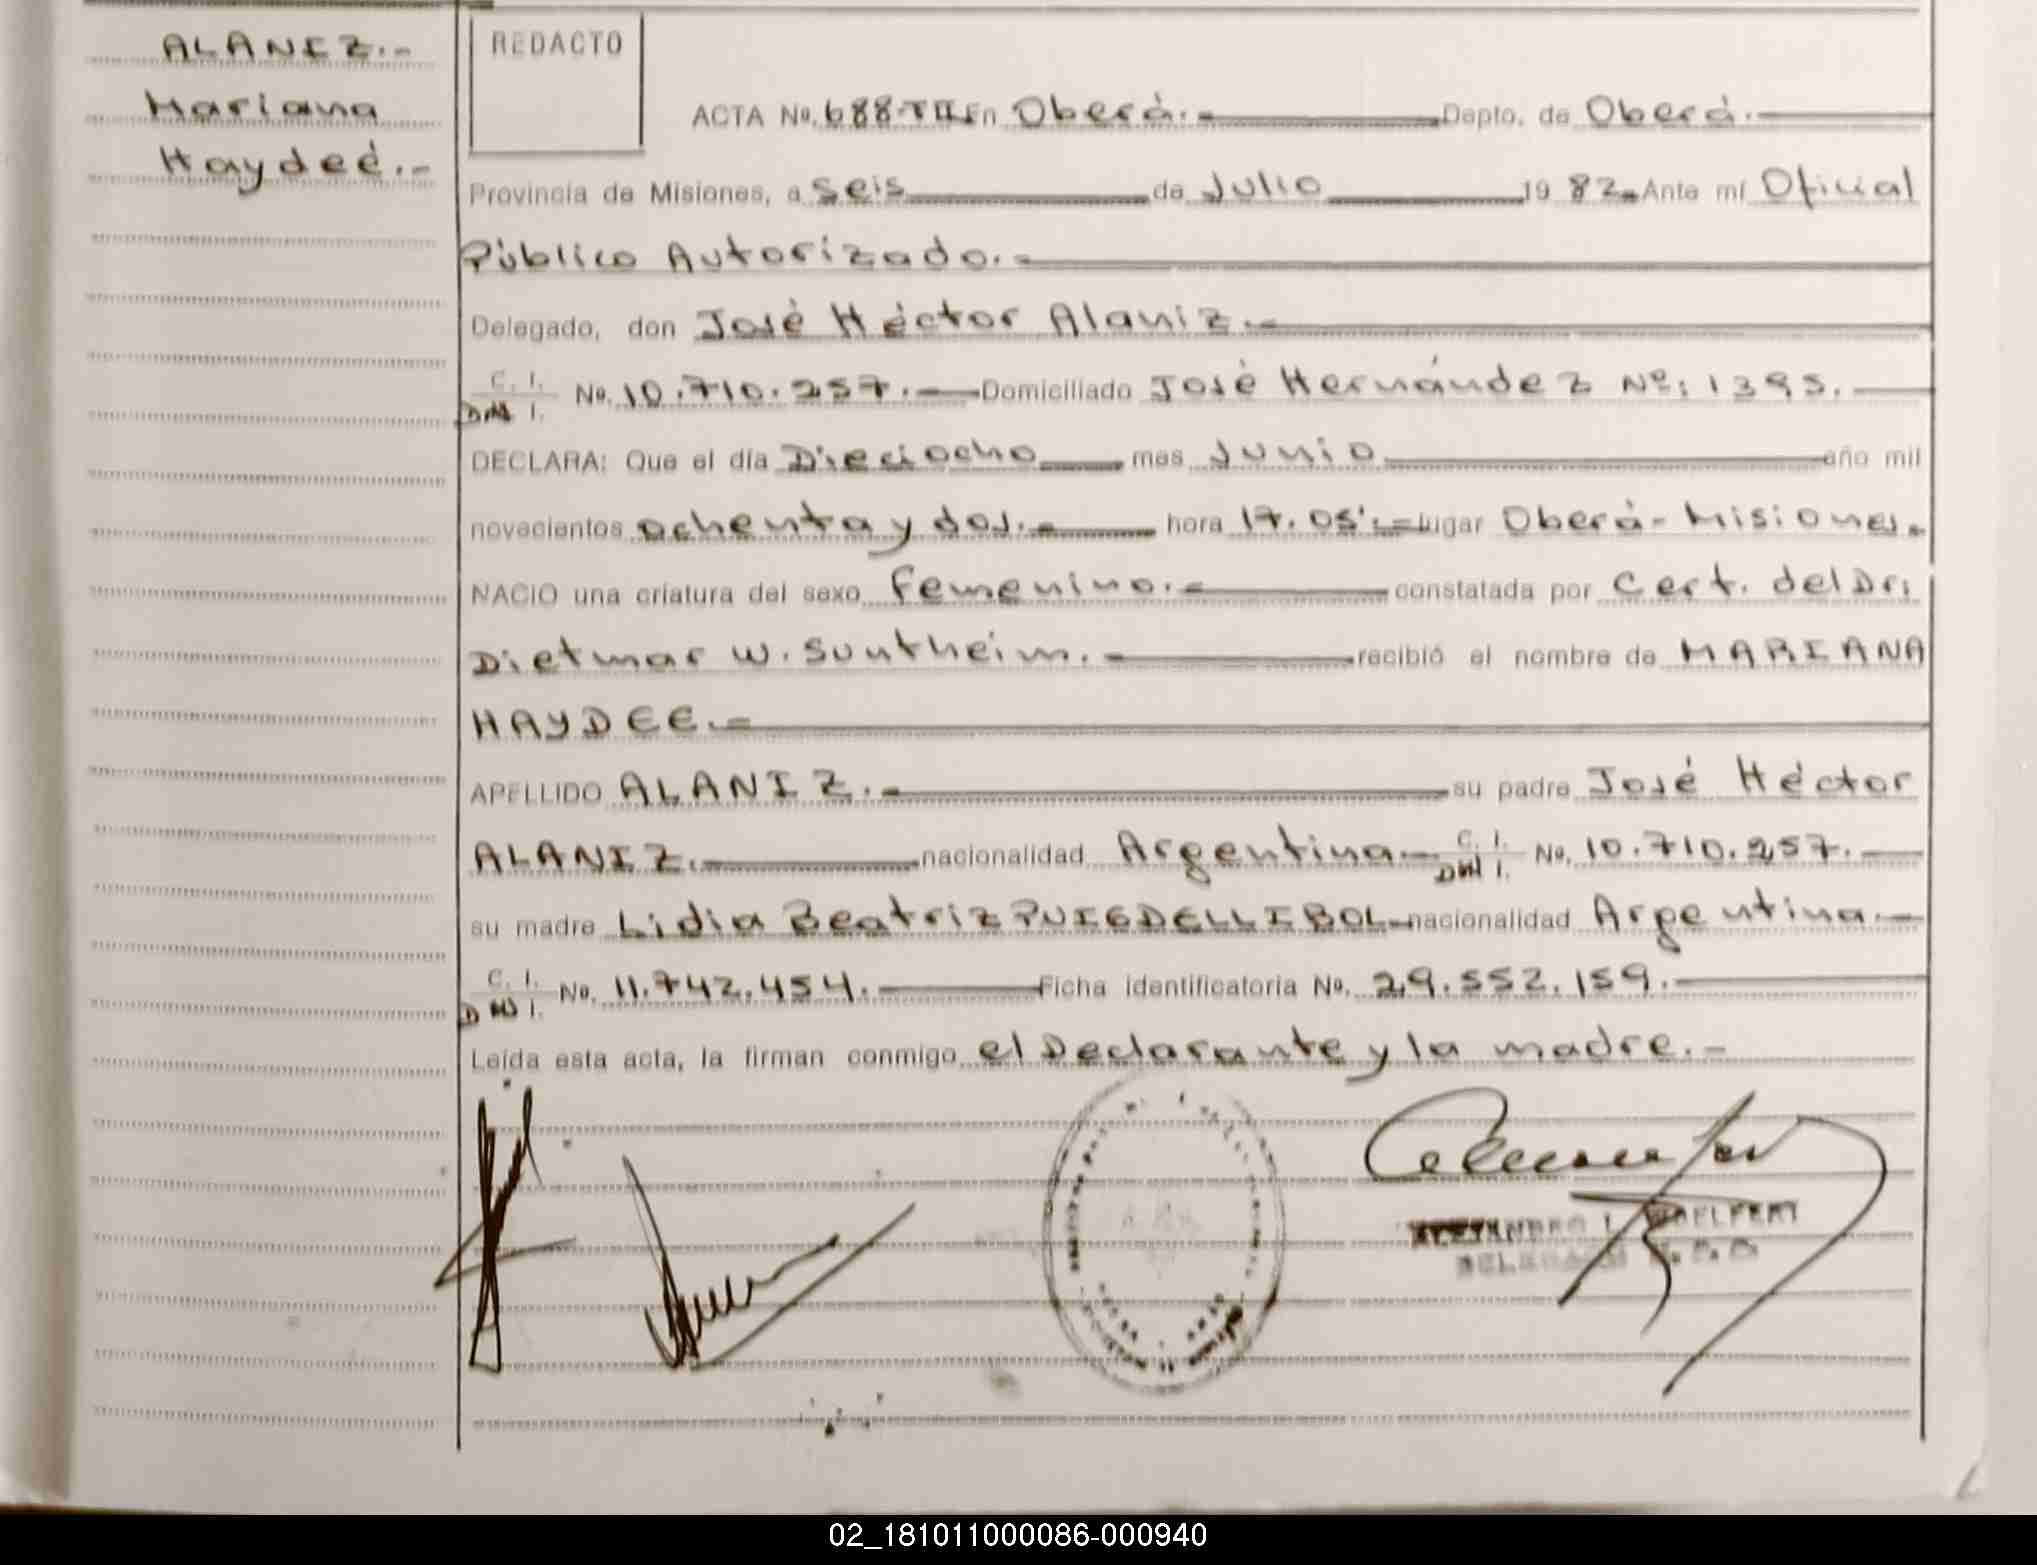 ALANIZ.-
Mariana
Haydeé.-
REDACTO
ACTA No. 688-TII En Oberá.- Depto. de Oberá.-
Provincia de Misiones, a seis de Julio 19 82 Ante mí Oficial
Público Autorizado.-
Delegado, don José Héctor Alaniz.-
C. I.
DNI I. No. 10.710.257.- Domiciliado José Hernández Nº: 1395.-
DECLARA: Que el día Dieciocho mes Junio año mil
novecientos ochenta y dos.- hora 17.05'.- lugar Oberá-Misiones.
NACIO una criatura del sexo Femenino.- constatada por Cert. del Dr:
Dietmar W. Suntheim.- recibió el nombre de MARIANA
HAYDEE.-
APELLIDO ALANIZ.- su padre José Héctor
ALANIZ.- nacionalidad Argentina.- C. I. DNI I. No. 10.710.257.-
su madre Lidia Beatriz PUIGDELLIBOL- nacionalidad Argentina.-
C. I.
DNI I. No. 11.742.454.- Ficha identificatoria No. 29.552.159.-
Leída esta acta, la firman conmigo el Declarante y la madre.-
02_181011000086-000940